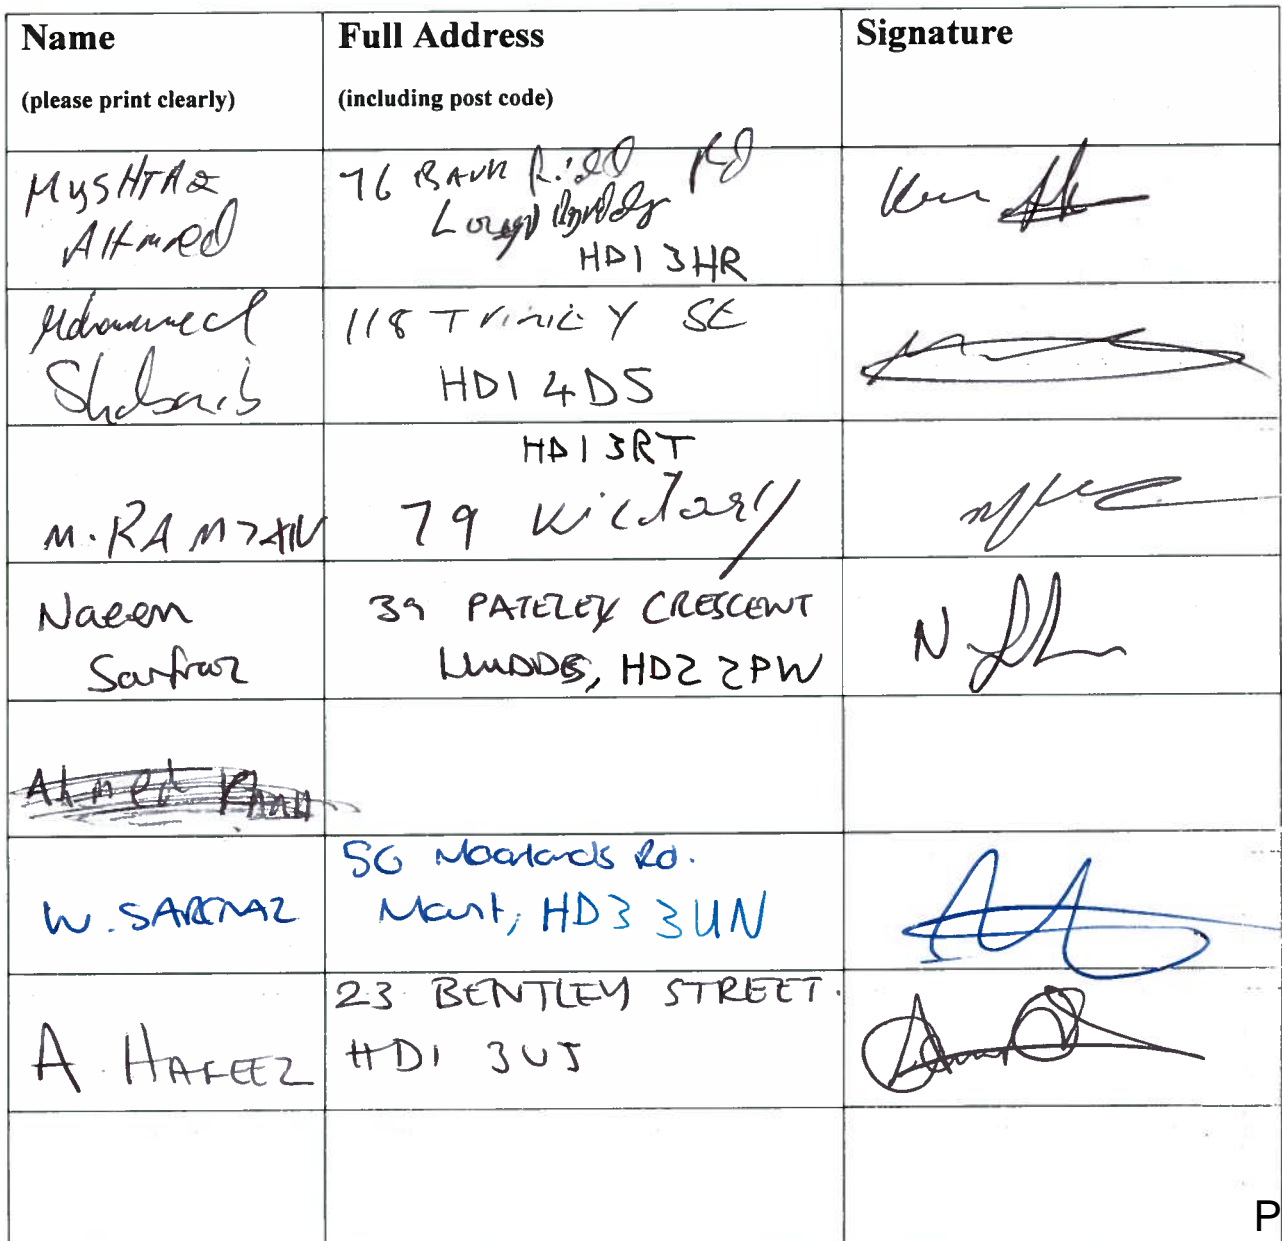 Name
(please print clearly)
Full Address
(including post code)
Signature
MUSHTAQ
AHmed
76
Rd
HD1 3HR
Mohammed
Shabaib
118 Trinity St
HD1 4DS
M. RAMZAN
HD1 3RT
79
Naeem
Sarfraz
39 PATELEY CRESCENT
HUDDS, HD2 2PW
N
Ahmed Khan
W. SARFRAZ
56 Moorlands Rd.
Mount, HD3 3UN
A. HAFEEZ
23 BENTLEY STREET.
HD1 3UJ
P